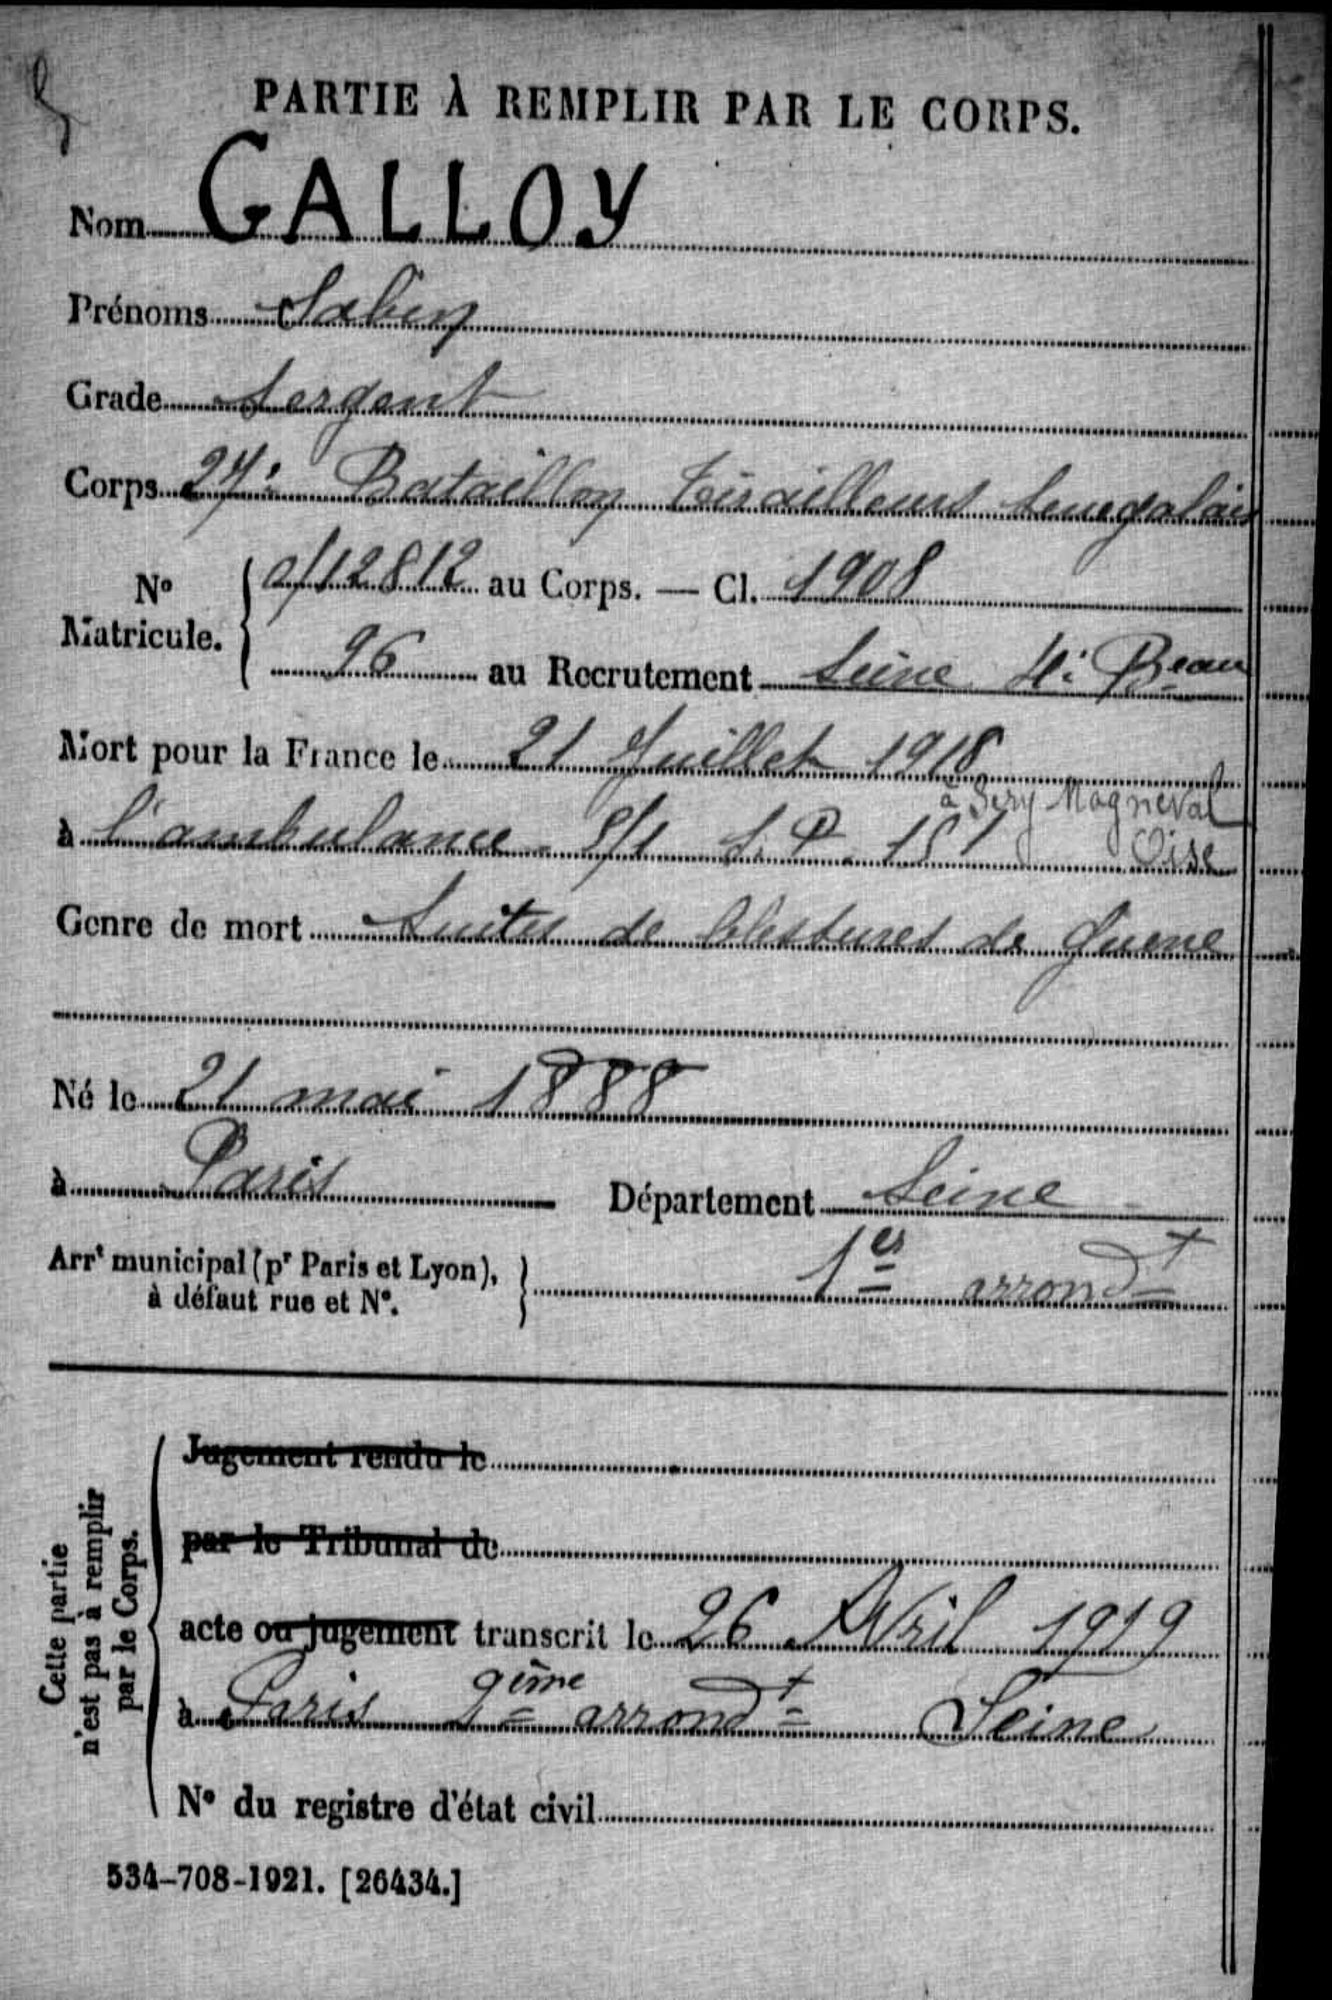 PARTIE À REMPLIR PAR LE CORPS.
Nom GALLOY
Prénoms Sabin
Grade Sergent
Corps 27e Bataillon Tirailleurs Senegalais
No Matricule. { 0/12812 au Corps. — Cl. 1908
96 au Recrutement Seine 4e Beau
Mort pour la France le 21 Juillet 1918
à Sery Magneval
à l'ambulance 8/1 S.P. 151 Oise
Genre de mort Suites de blessures de Guerre
Né le 21 mai 1888
à Paris Département Seine
Arrt municipal (pr Paris et Lyon), à défaut rue et No. } 1er arrondt
Cette partie n'est pas à remplir par le Corps.
Jugement rendu le
par le Tribunal de
acte ou jugement transcrit le 26 Avril 1919
à Paris 2ème arrondt Seine
No du registre d'état civil
534-708-1921. [26434.]